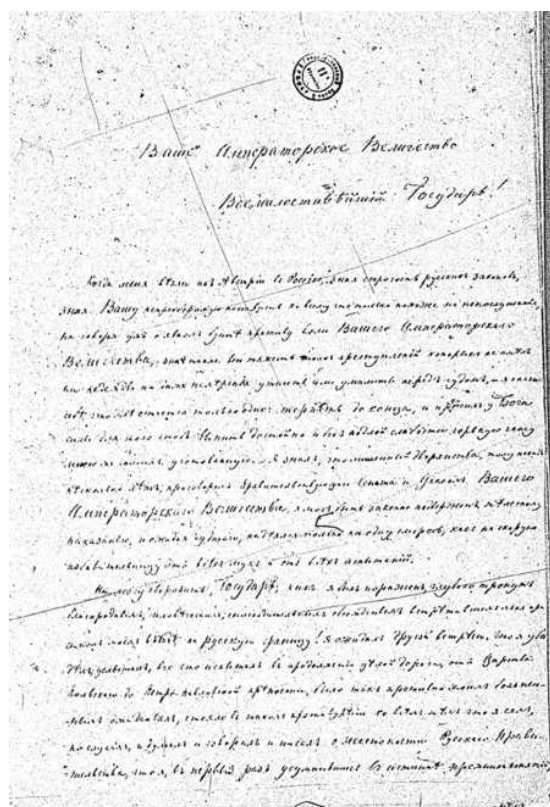 Ваше Императорское Величество
Всемилостивѣйшій Государь!
Когда меня везли изъ Австріи въ Россію, зная строгость русскихъ законовъ,
зная Вашу непреоборимую ненависть ко всему что только похоже на непослушаніе,
не говоря уже о явномъ бунтѣ противу воли Вашего Императорского
Величества, зная также всю тяжесть моихъ преступленій которыхъ не имѣлъ
ни надежды ни даже намѣренія утаить или умалить передъ судомъ, я сказалъ
себѣ что мнѣ остается только одно: терпѣть до конца, и просилъ у Бога
силы для того чтоб выпить достойно и безъ подлой слабости горькую чашу
мною же самимъ уготованную. Я зналъ, что лишенный дворянства, тому назадъ
нѣсколько лѣтъ, приговоромъ Правительствующаго Сената и Указомъ Вашего
Императорского Величества, я могъ быть законно подверженъ тѣлесному
наказанію, и ожидая худшаго, надѣялся только на одну смерть, какъ на скорую
избавительницу отъ всѣхъ мукъ и отъ всѣхъ испытаній.
Не могу выразить, Государь, какъ я былъ пораженъ, глубоко тронутъ
благороднымъ, снисходительнымъ обхожденіемъ при
въѣздѣ на русскую границу! Я ожидалъ другой встрѣчи. что я уви
дѣлъ, услышалъ, все что испыталъ въ продолженіи цѣлой дороги, отъ Царства
Польского до Петропавловской крѣпости, было такъ противно моимъ боязнен-
нымъ ожиданіямъ, стояло въ такомъ противурѣчіи со всѣмъ тѣмъ что я самъ,
по слухамъ, и думалъ и говорилъ и писалъ о жестокости Русского Прави-
тельства, что я, въ первый разъ усумнившись въ истинѣ прежнихъ понятій,